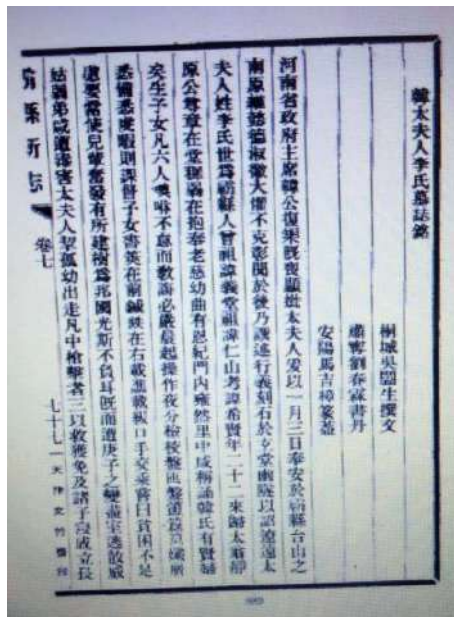 韓太夫人李氏墓誌銘
桐城吳闓生撰文
肅寧劉春霖書丹
安陽馬吉樟篆蓋
河南省政府主席韓公復榘既喪顯妣太夫人爰以一月三日奉安於縣台山之
南原繼懿德淑徽大懼不克彰聞於後乃譔述行義刻石於玄堂兩隧以詔遼遠太
夫人姓李氏世為縣人曾祖諱義堂祖諱仁山考諱希賢年二十二來歸太翁靜
原公尊章在堂穉弱在抱奉老慈幼曲有恩紀門內雍然里中咸稱誦韓氏有賢婦
矣生子女凡六人噢咻不怠而教誨必嚴晨起操作夜分檢校盤匜盤
悉備悉度暇則課督子女書筴在前鍼鈇在右載進載板口手交乘嘗曰貧困不足
慮要當使兒輩奮發有所建樹為邦國光斯不負耳既而遭庚子之變盡室逃散威
姑弱弟咸遭害太夫人挈孤幼出走凡中槍擊者三以救獲免及諸子成立長
縣新志
卷七
七十七
天作文竹齋